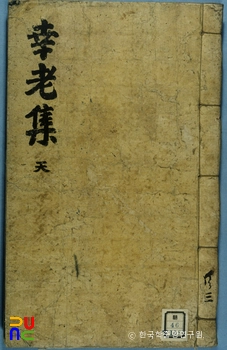 幸老集
天
共三
© 한국학중앙연구원